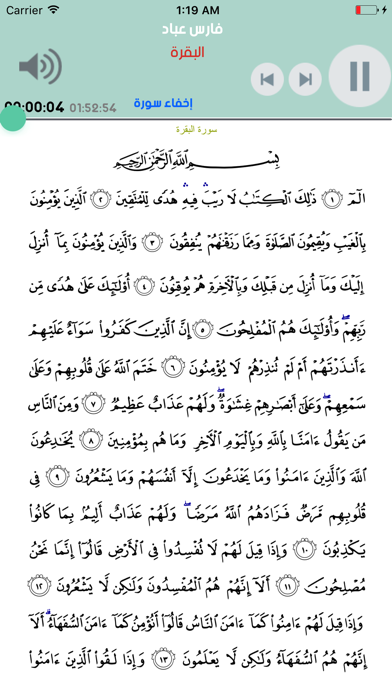 Carrier 1:19 AM
فارس عباد
البقرة
00:00:04 01:52:54 إخفاء سورة
سورة البقرة
بِسْمِ اللَّهِ الرَّحْمَٰنِ الرَّحِيمِ
الٓمٓ ١ ذَٰلِكَ الْكِتَٰبُ لَا رَيْبَ ۛ فِيهِ ۛ هُدًى لِّلْمُتَّقِينَ ٢ الَّذِينَ يُؤْمِنُونَ
بِالْغَيْبِ وَيُقِيمُونَ الصَّلَوٰةَ وَمِمَّا رَزَقْنَٰهُمْ يُنفِقُونَ ٣ وَالَّذِينَ يُؤْمِنُونَ بِمَآ أُنزِلَ
إِلَيْكَ وَمَآ أُنزِلَ مِن قَبْلِكَ وَبِالْءَاخِرَةِ هُمْ يُوقِنُونَ ٤ أُو۟لَٰٓئِكَ عَلَىٰ هُدًى مِّن
رَّبِّهِمْ ۖ وَأُو۟لَٰٓئِكَ هُمُ الْمُفْلِحُونَ ٥ إِنَّ الَّذِينَ كَفَرُوا۟ سَوَآءٌ عَلَيْهِمْ
ءَأَنذَرْتَهُمْ أَمْ لَمْ تُنذِرْهُمْ لَا يُؤْمِنُونَ ٦ خَتَمَ اللَّهُ عَلَىٰ قُلُوبِهِمْ وَعَلَىٰ
سَمْعِهِمْ ۖ وَعَلَىٰٓ أَبْصَٰرِهِمْ غِشَٰوَةٌ ۖ وَلَهُمْ عَذَابٌ عَظِيمٌ ٧ وَمِنَ النَّاسِ
مَن يَقُولُ ءَامَنَّا بِاللَّهِ وَبِالْيَوْمِ الْءَاخِرِ وَمَا هُم بِمُؤْمِنِينَ ٨ يُخَٰدِعُونَ
اللَّهَ وَالَّذِينَ ءَامَنُوا۟ وَمَا يَخْدَعُونَ إِلَّآ أَنفُسَهُمْ وَمَا يَشْعُرُونَ ٩ فِى
قُلُوبِهِم مَّرَضٌ فَزَادَهُمُ اللَّهُ مَرَضًا ۖ وَلَهُمْ عَذَابٌ أَلِيمٌۢ بِمَا كَانُوا۟
يَكْذِبُونَ ١٠ وَإِذَا قِيلَ لَهُمْ لَا تُفْسِدُوا۟ فِى الْأَرْضِ قَالُوٓا۟ إِنَّمَا نَحْنُ
مُصْلِحُونَ ١١ أَلَآ إِنَّهُمْ هُمُ الْمُفْسِدُونَ وَلَٰكِن لَّا يَشْعُرُونَ ١٢
وَإِذَا قِيلَ لَهُمْ ءَامِنُوا۟ كَمَآ ءَامَنَ النَّاسُ قَالُوٓا۟ أَنُؤْمِنُ كَمَآ ءَامَنَ السُّفَهَآءُ ۗ أَلَآ
إِنَّهُمْ هُمُ السُّفَهَآءُ وَلَٰكِن لَّا يَعْلَمُونَ ١٣ وَإِذَا لَقُوا۟ الَّذِينَ ءَامَنُوا۟